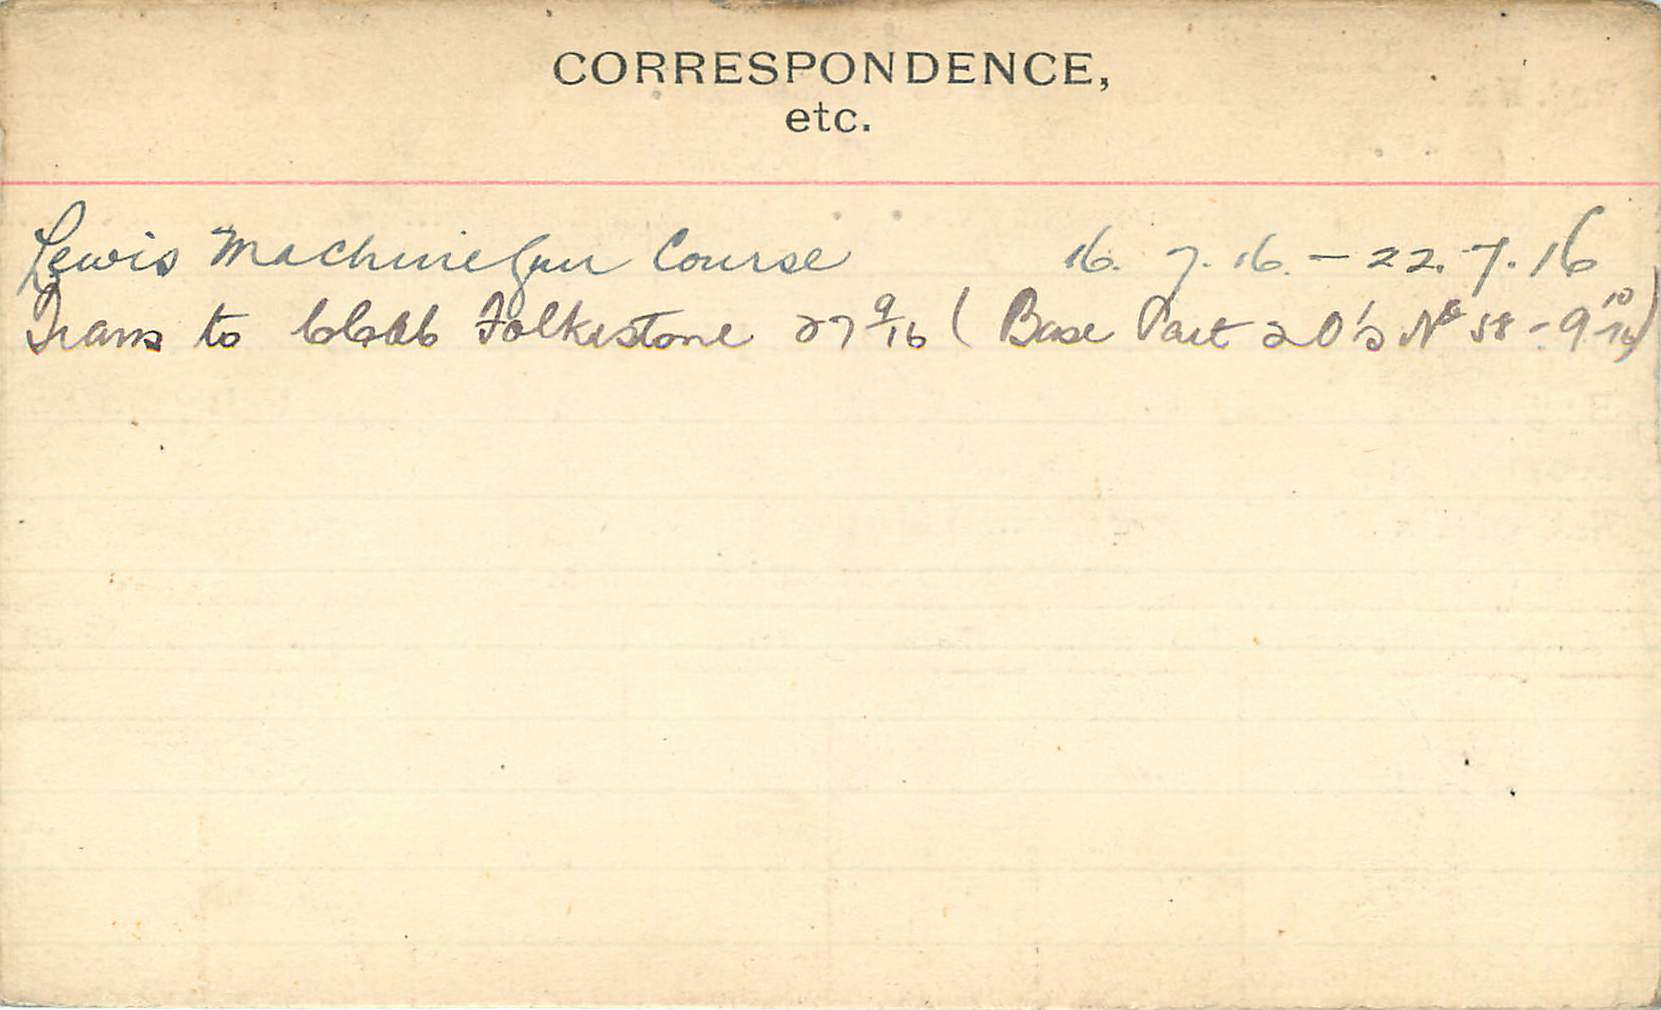 CORRESPONDENCE,
etc.
Lewis Machine Gun Course 16. 7. 16. – 22. 7. 16
Trans to CCAC Folkestone 27 9/16 ( Base Part 2 O's No 58 - 9 10/16)